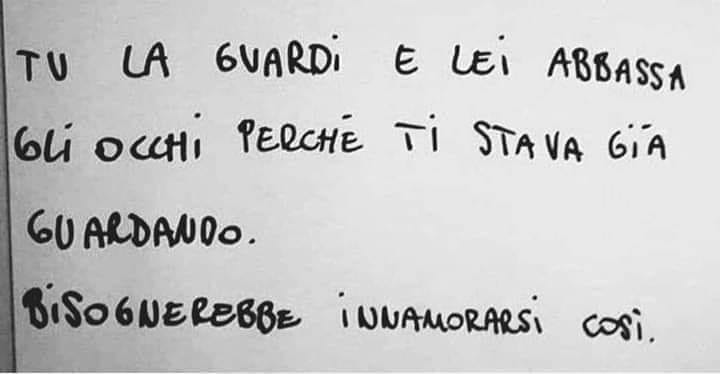 TU LA GUARDi E LEi ABBASSA
GLi OCCHi PERCHÉ Ti STAVA GiÀ
GUARDANDO.
BiSOGNEREBBE iNNAMORARSi COSÌ.